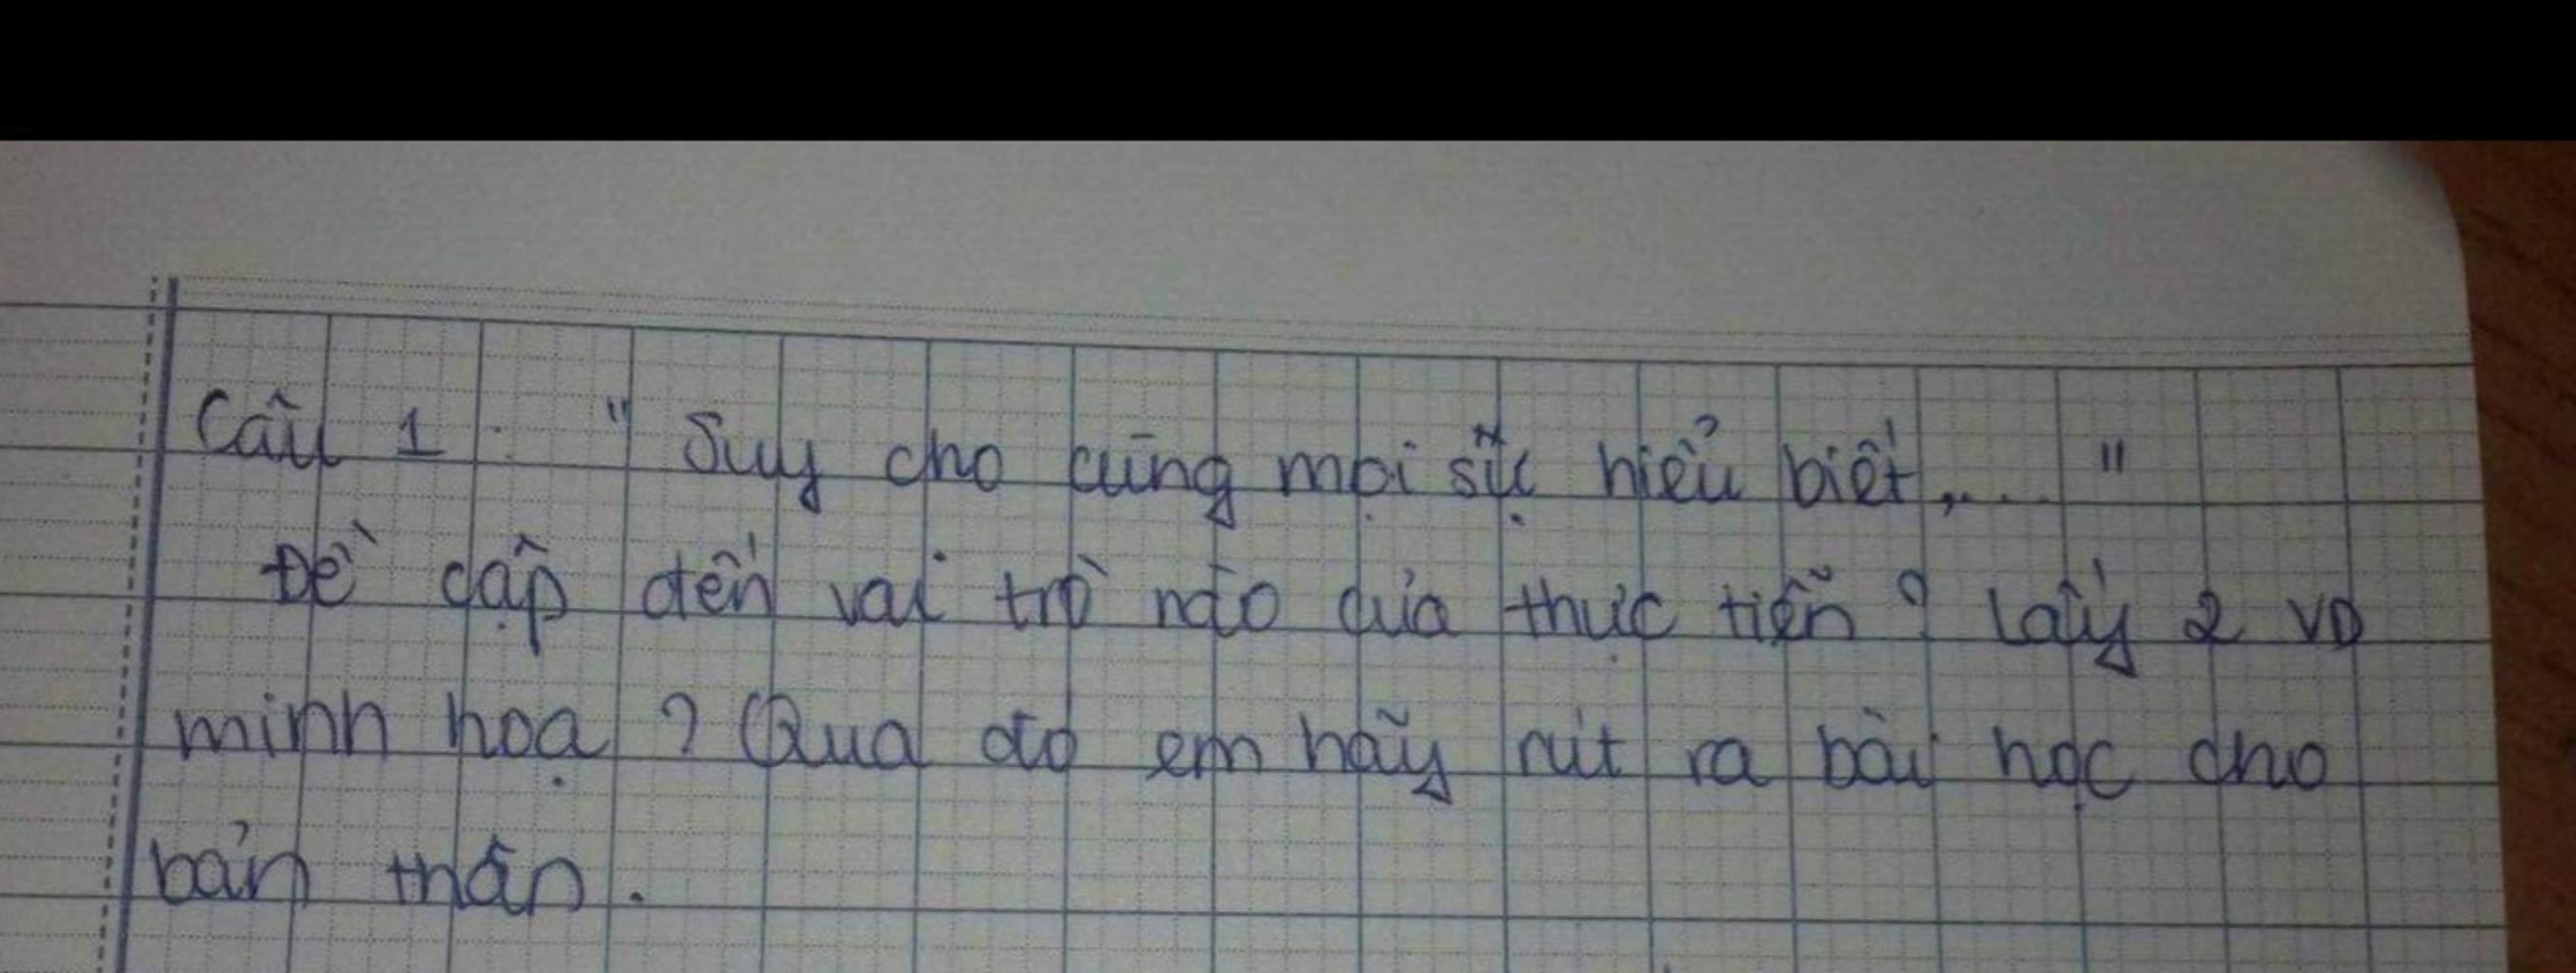 Câu 1: " Suy cho cùng mọi sự hiểu biết,... "
Đề cập đến vai trò nào của thực tiễn? Lấy 2 VD
minh họa? Qua đó em hãy rút ra bài học cho
bản thân.